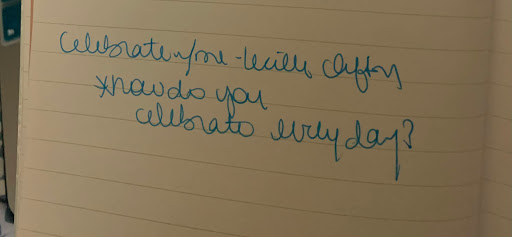 celebrate w/me - lucille clifton
*how do you
celebrate everyday?